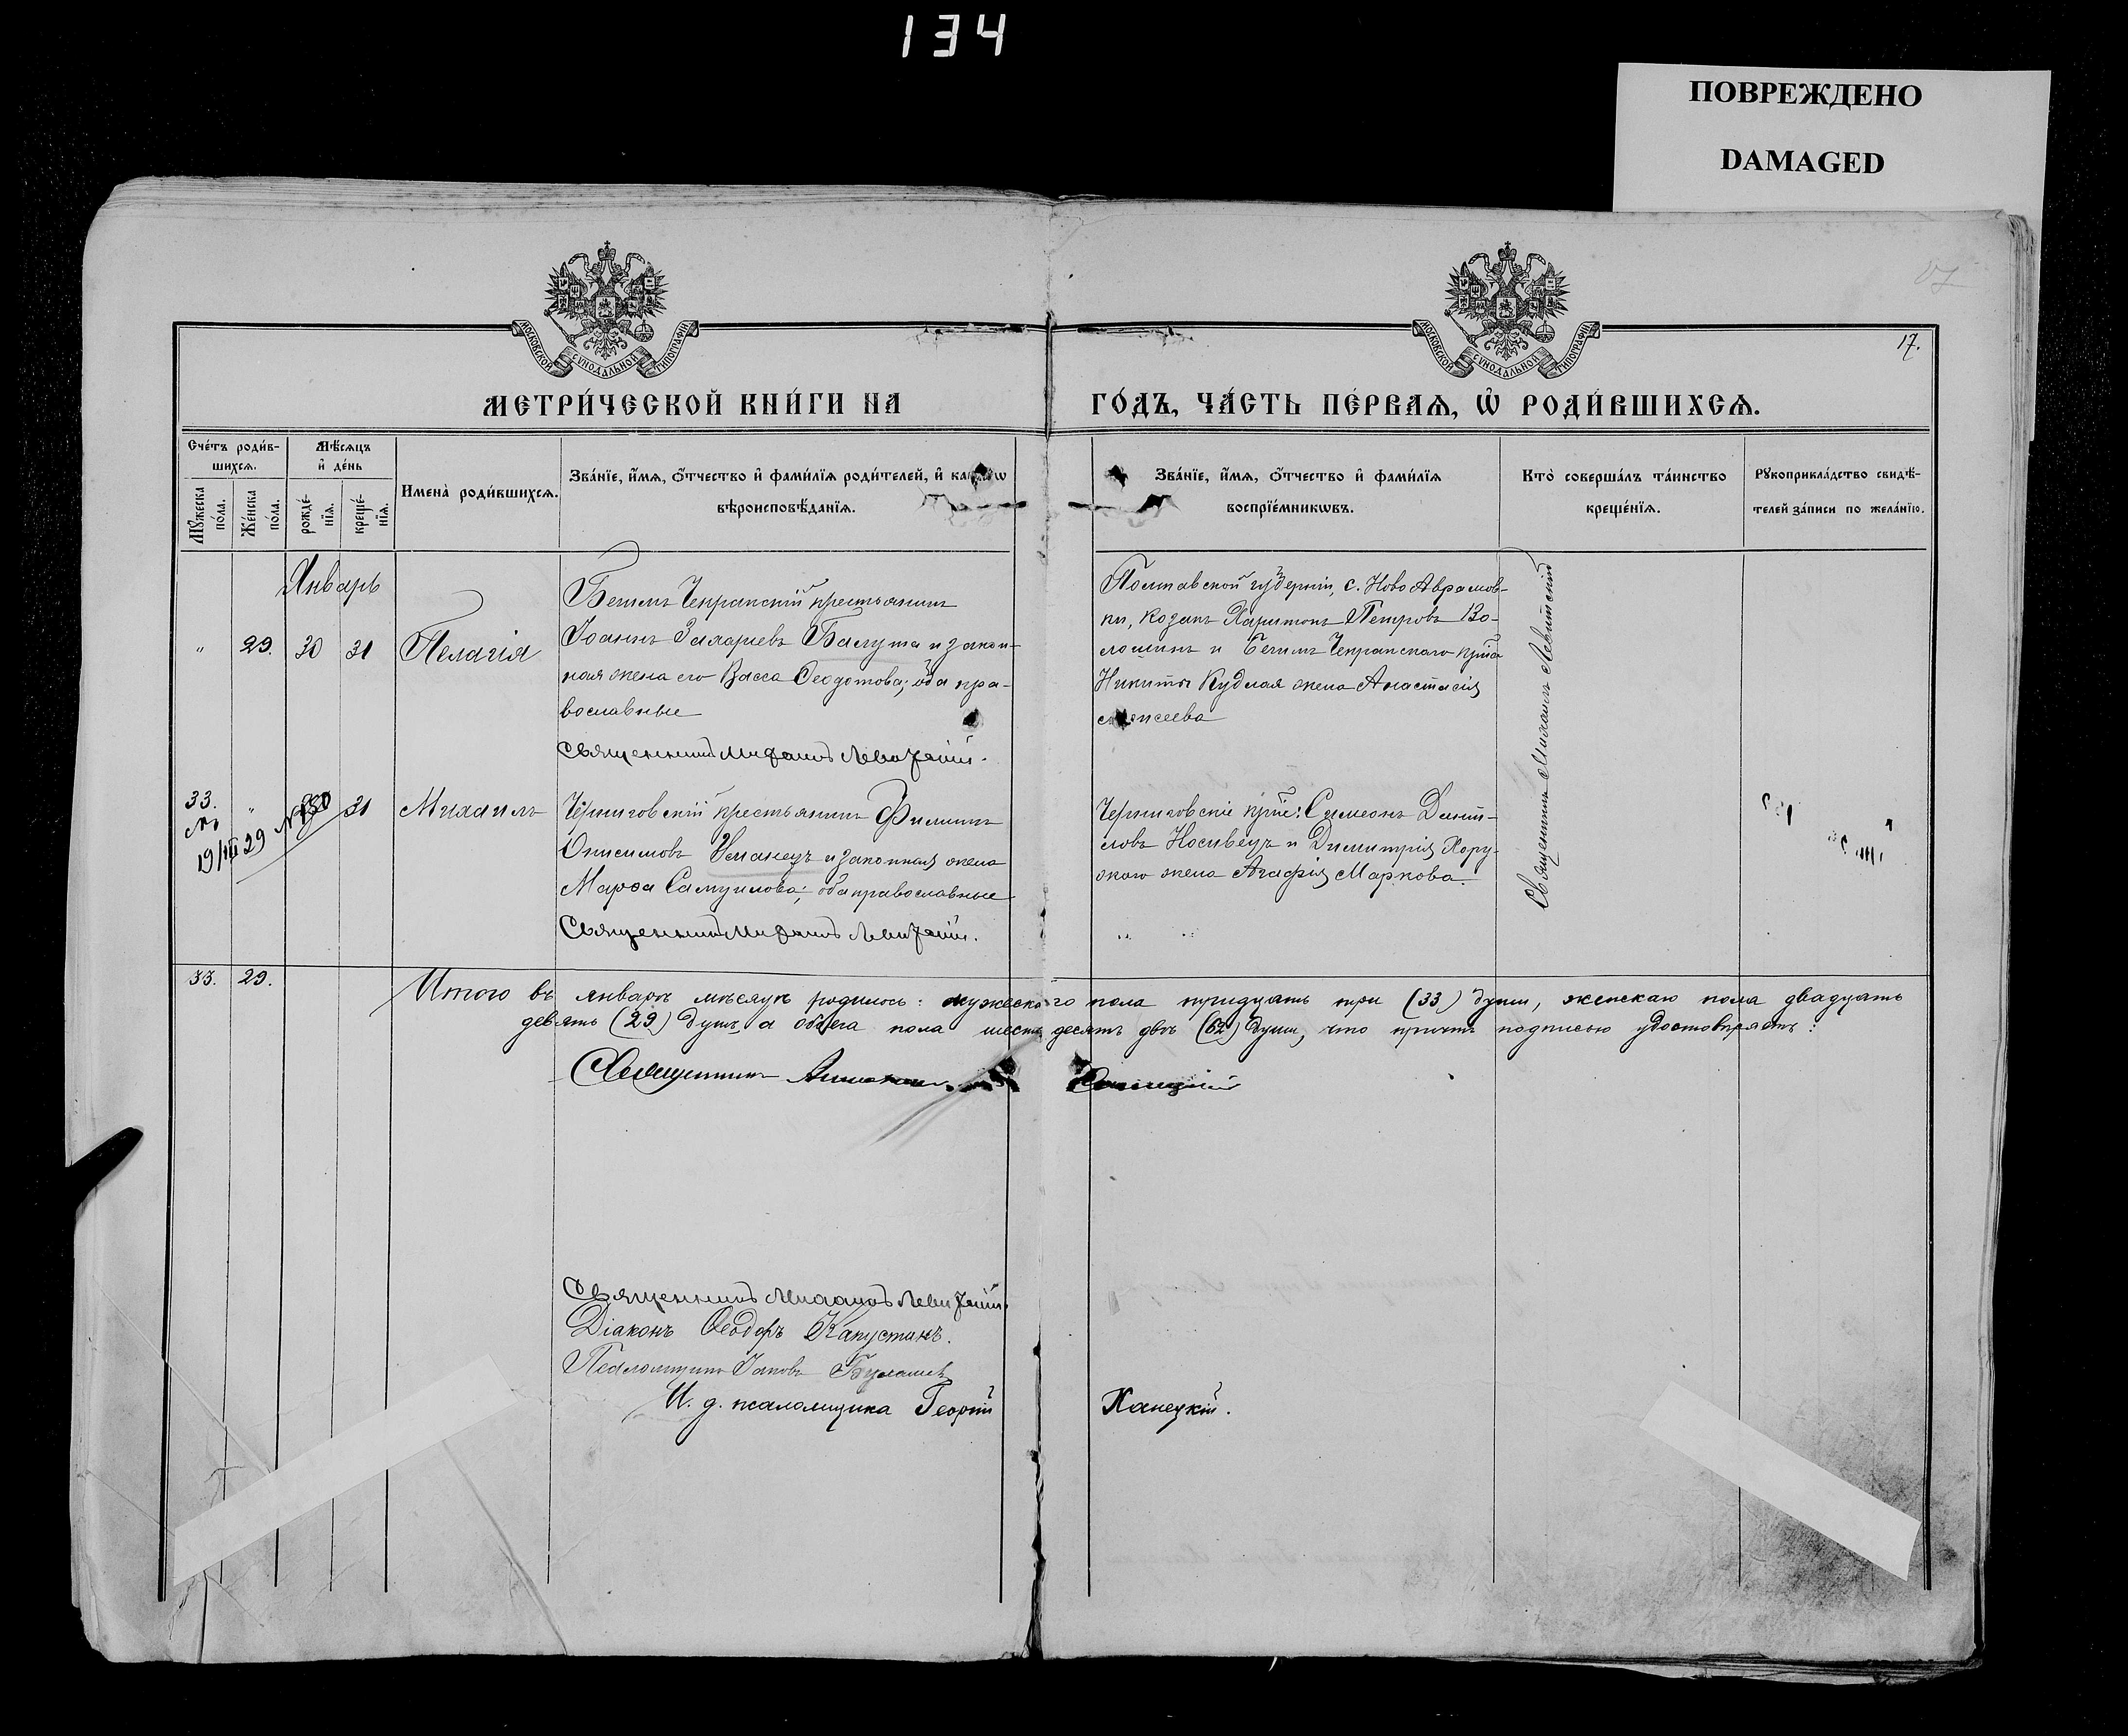 134
ПОВРЕЖДЕНО
DAMAGED
МОСКОВСКОЙ СѴНОДАЛЬНОЙ ТИПОГРАФІИ
МОСКОВСКОЙ СѴНОДАЛЬНОЙ ТИПОГРАФІИ
17.
МЕТРИ́ЧЕСКОЙ КНИ́ГИ НА ГО́ДЪ, ЧА́СТЬ ПЕ́РВАѦ, Ѡ҆ РОДИ́ВШИХСѦ.
Сче́тъ роди́в-
шихсѧ.
Мѣ́сѧцъ
и҆ де́нь
Мꙋ́жеска по́ла.
Же́нска по́ла.
рожде́-
нїѧ.
креще́-
нїѧ.
Имена̀ роди́вшихсѧ.
Зва́нїе, и҆́мѧ, ѻ҆́тчество и҆ фами́лїѧ роди́телей, и҆
вѣроисповѣ́данїѧ.
Зва́нїе, и҆́мѧ, ѻ҆́тчество и҆ фами́лїѧ
воспрїе́мникѡвъ.
Кто̀ соверша́лъ та́инство
креще́нїѧ.
Рꙋкоприкла́дство свидѣ́-
телей за́писи по жела́нїю.
Январь
„ 29. 30 31 Пелагія
Бегимъ Чекракскій крестьянинъ
Іоаннъ Захаріевъ Балута и закон-
ная жена его Васса Ѳеодотова; оба пра-
вославные
Священникъ Михаилъ Левитскій.
Полтавской губерніи, с. Ново Аврамов-
ки, козакъ Харитонъ Петровъ Во-
лошинъ и Бегимъ Чекракскаго кр̃на
Никиты Кудлая жена Анастасія
Священникъ Михаилъ Левитскій
33. „ 30 31 Михаилъ
19/III 29
Черниговскій крестьянинъ Филиппъ
Онисимовъ Уманецъ и законная жена
Марѳа Самуилова; оба православные
Священникъ Михаилъ Левитскій.
Черниговскіе кр̃не: Симеонъ Данiи-
ловъ Носивецъ и Димитрія Хору-
жаго жена Агафія Маркова.
33. 29.
Итого въ январѣ мѣсяцѣ родилось: мужескаго пола тридцать три (33) души, женскаго пола двадцать
девять (29) душъ, а обоего пола шестьдесятъ двѣ (62) души, что причтъ подписью удостовѣряетъ:
Священникъ
Священникъ Михаилъ Левитскій.
Діаконъ Ѳеодоръ Капустинъ.
Псаломщикъ Іаковъ
И. д. псаломщика Георгій Ханецкій.